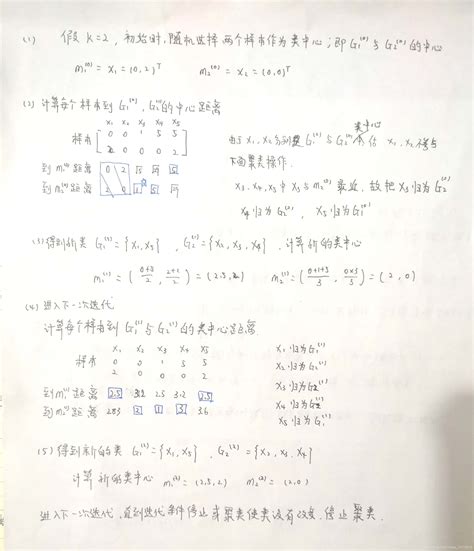 (1) 假 K=2, 初始时, 随机选择两个样本作为类中心; 即 G₁⁽⁰⁾ 与 G₂⁽⁰⁾ 的中心
m₁⁽⁰⁾ = X₁ = (0,2)ᵀ m₂⁽⁰⁾ = X₂ = (0,0)ᵀ
(2) 计算每个样本到 G₁⁽⁰⁾, G₂⁽⁰⁾ 的中心距离
X₁ X₂ X₃ X₄ X₅
样本 [ 0 0 1 5 5
2 0 0 0 2 ]
到 m₁⁽⁰⁾ 距离 0 2
到 m₂⁽⁰⁾ 距离 2 0
类中心
由于 X₁, X₂ 分别是 G₁⁽⁰⁾ 与 G₂⁽⁰⁾ X₁, X₂ 不参与
下面聚类操作.
X₃, X₄, X₅ 中 X₃ 与 m₂⁽⁰⁾ 最近, 故把 X₃ 归为 G₂⁽⁰⁾
X₄ 归为 G₂⁽⁰⁾, X₅ 归为 G₁⁽⁰⁾
(3) 得到新类 G₁⁽¹⁾ = {X₁, X₅}, G₂⁽¹⁾ = {X₂, X₃, X₄}, 计算新的类中心
m₁⁽¹⁾ = (0+5/2, 2+2/2) = (2.5, 2) m₂⁽¹⁾ = (0+1+5/3, 0×3/3) = (2, 0)
(4) 进入下一次迭代
计算每个样本到 G₁⁽¹⁾ 与 G₂⁽¹⁾ 的类中心距离
X₁ X₂ X₃ X₄ X₅
样本 0 0 1 5 5
2 0 0 0 2
到 m₁⁽¹⁾ 距离 2.5 3.2 2.5 3.2 2.5
到 m₂⁽¹⁾ 距离 2.83 2 1 3 3.6
X₁ 归为 G₁⁽¹⁾
X₂ 归为 G₂⁽¹⁾
X₃ 归为 G₂⁽¹⁾
X₄ 归为 G₂⁽¹⁾
X₅ 归为 G₁⁽¹⁾
(5) 得到新的类 G₁⁽²⁾ = {X₁, X₅}, G₂⁽²⁾ = {X₂, X₃, X₄}
计算新的类中心 m₁⁽²⁾ = (2.5, 2) m₂⁽²⁾ = (2, 0)
进入下一次迭代, 直到迭代条件停止或聚类使类没有改变, 停止聚类.